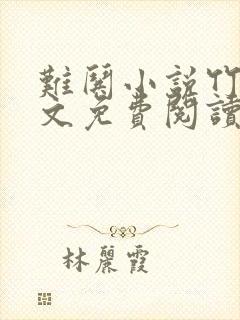 難關小說竹
文免費閱讀
林麗霞